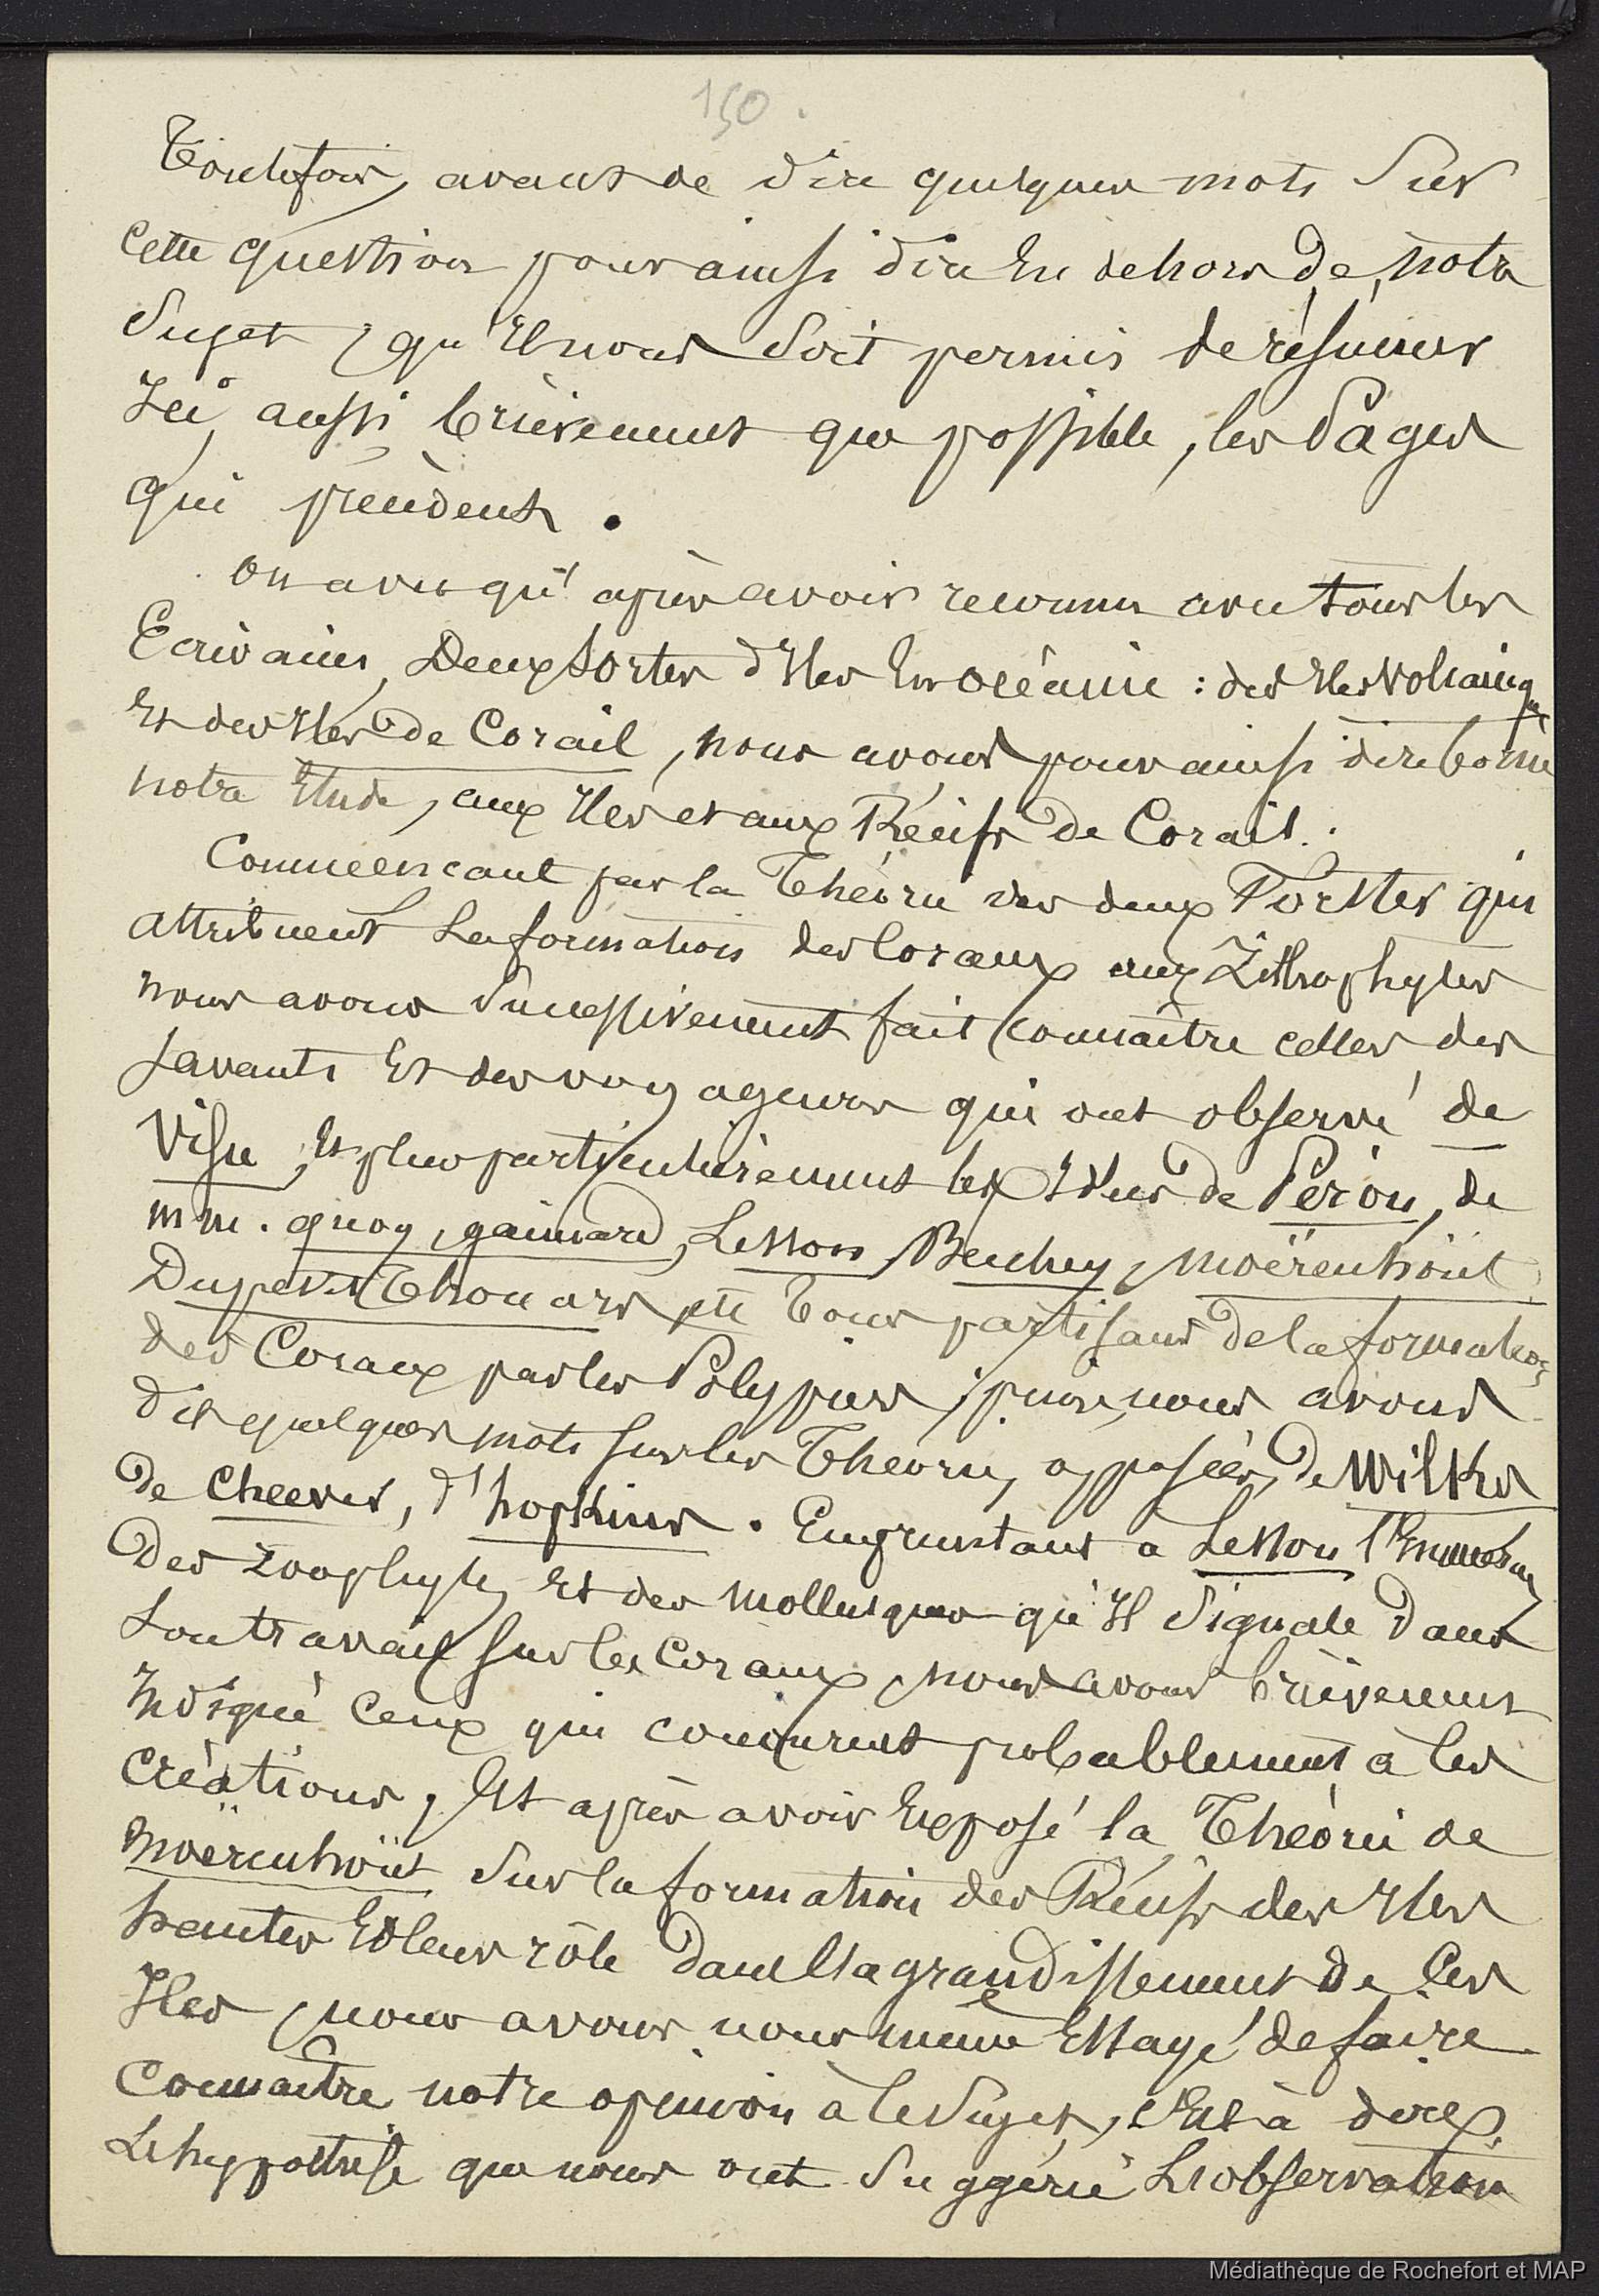 150.
Toutefois, avant de dire quelques mots sur
cette question pour ainsi dire En dehors de notre
Sujet, qu'Il nous soit permis de résumer
Ici, aussi brièvement que possible, les Pages
qui précèdent.
On a vu qu'après avoir reconnu avec tous les
Ecrivains, Deux sortes d'Iles En océanie : des Iles Volcaniques
Et des Iles de Corail, nous avons pour ainsi dire borné
notre Etude, aux Iles et aux Récifs de Corail.
Commencant par la Théorie des deux Forster qui
attribuent La formation des Coraux aux Lithophytes
nous avons Successivement fait connaître celles des
savants Et des voyageurs qui ont observé de
visu, Et plus particulièrement les Idées de Péron, de
mm. quoy, gaimard, Lesson, Beechey, moërenhoüt,
Dupetit Thouars etc Tous partisans de la formation
des Coraux par les Polypiers ; puis, nous avons
dit quelques mots sur les Théories opposées, de Wilkes
de Cheever, d'hopkins. Empruntant a Lesson l'Enumération
Des zoophytes Et des mollusques qu'Il signale Dans
son travail sur les Coraux, nous avons brièvement
Indiqué Ceux qui concourent probablement à les
Créations, Et après avoir Exposé la Théorie de
moërenhoüt Sur la formation des Récifs des Iles
hautes Et leur rôle Dans l'agrandissement de Ces
Iles, nous avons nous même Essayé de faire
Connaître notre opinion à ce Sujet, c'Est à dire
L'hypothèse que nous ont Suggéré Les observations
Médiathèque de Rochefort et MAP